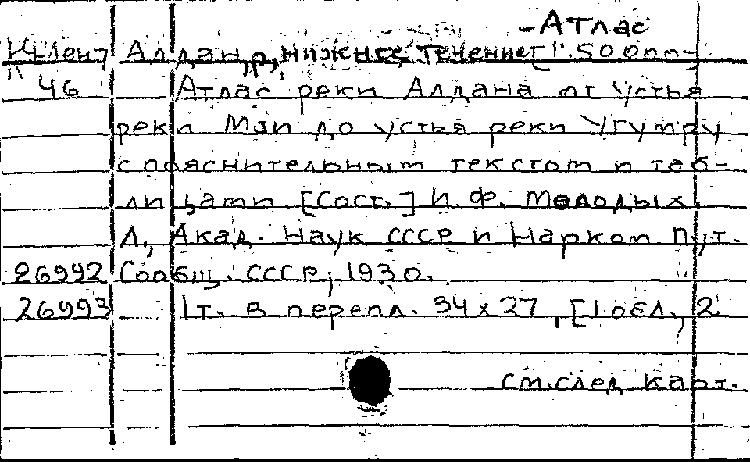 – Атлас
Алдан, р, нижнее течение [1:50000–
46 Атлас реки Алдана от устья
реки Маи до устья реки Угумру
с пояснительным текстом и таб-
лицами [Сост.] И. Ф. Молодых.
Л., Акад. Наук СССР и Нарком Пут.
26992 Сообщ. СССР, 1930.
26993 1т. в перепл. 34x27, [1 обл., 2
см.след карт.